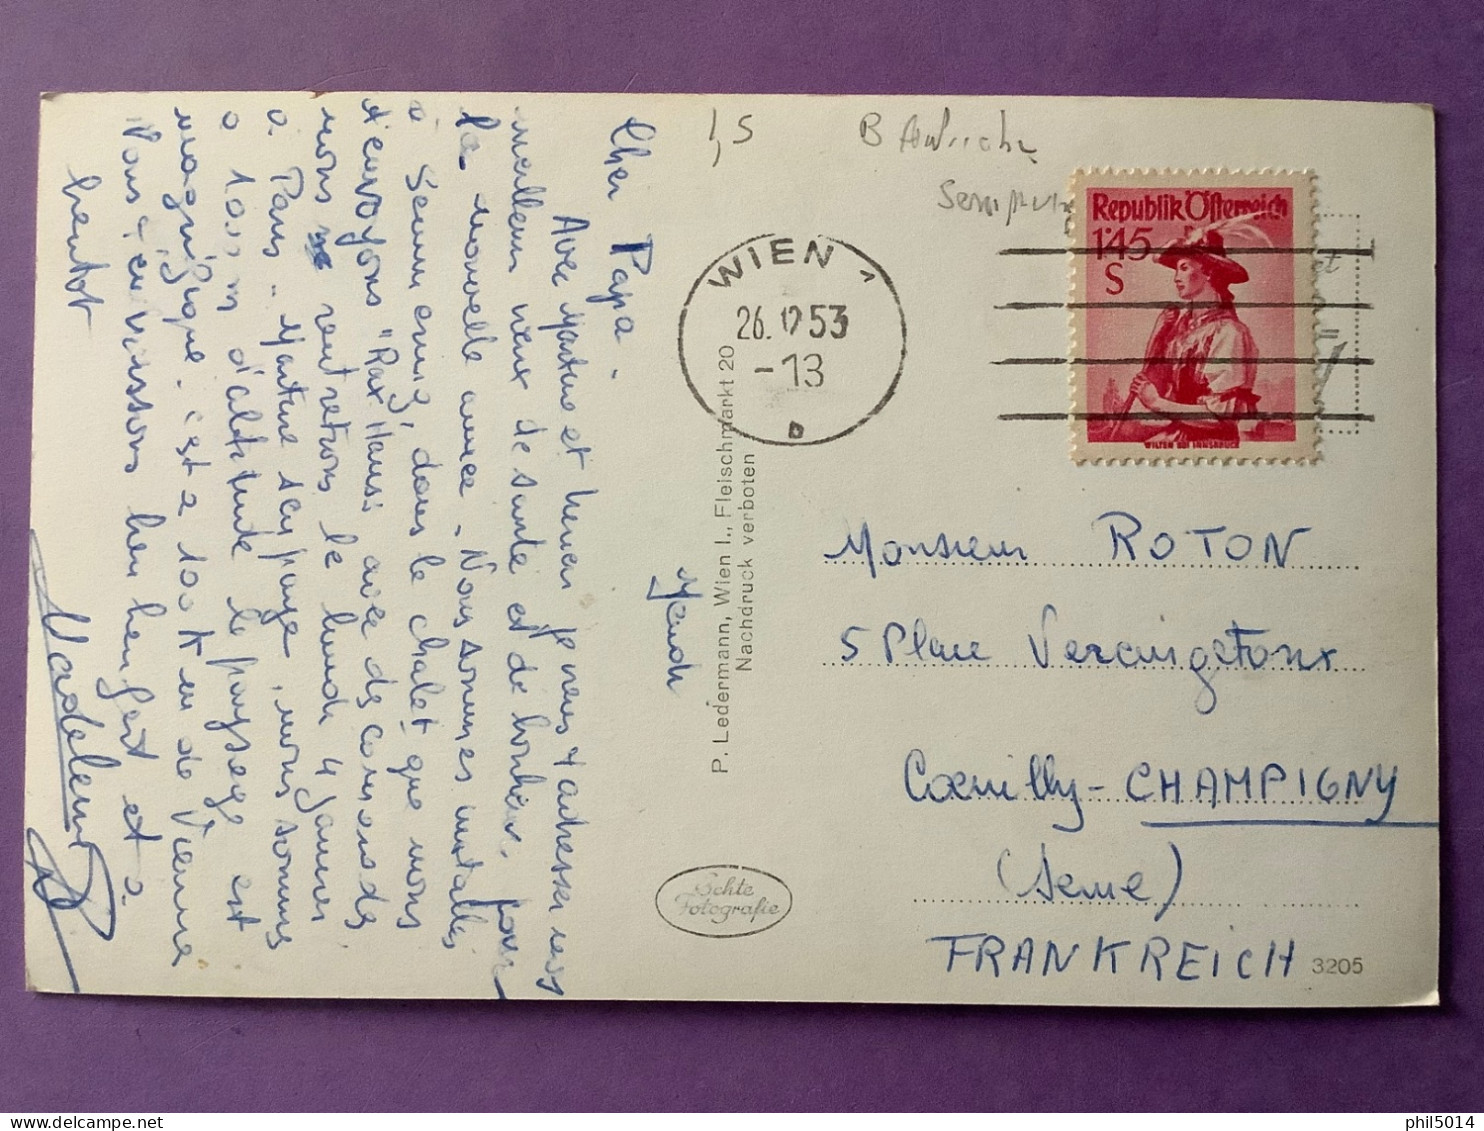 Cher Papa.
Avec Martine et Henri je vous adresse nos
meilleurs vœux de santé et de bonheur, pour
la nouvelle année. Nous sommes installés
à Semmering, dans le chalet que nous
t'envoyons "Raxhaus" avec des camarades
nous rentrerons le lundi 4 Janvier
à Paris. Martine
à 10 m d'altitude le paysage est
magnifique. C'est à 100 Km de Vienne
Nous t'embrassons bien bien fort et à
bientot
Madeleine
Jeudi
1,5
B Autriche
WIEN 1
26.12.53
-13
b
Republik Österreich
1'45
S
WILTEN BEI INNSBRUCK
P. Ledermann, Wien I., Fleischmarkt 20
Nachdruck verboten
Monsieur ROTON
5 Place Vercingetorix
Cœuilly - CHAMPIGNY
(Seine)
FRANKREICH
3205
Echte
Fotografie
phil5014